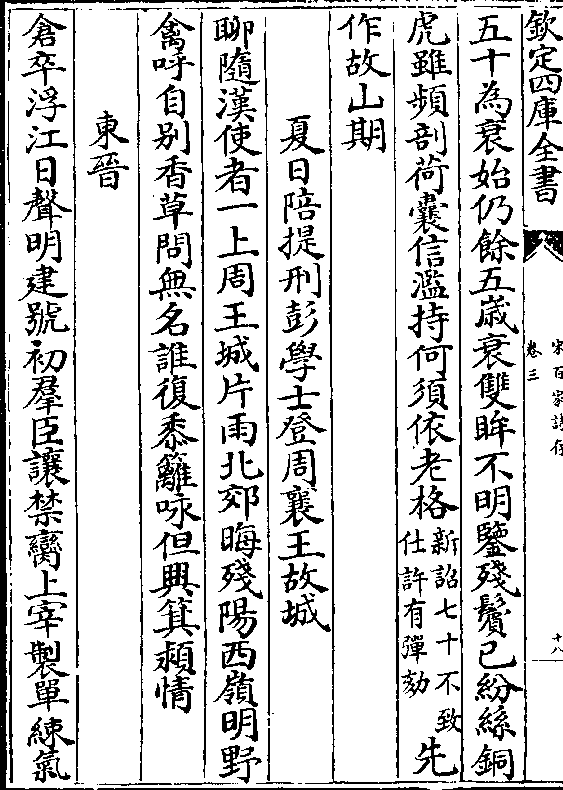 欽定四庫全書
宋百家詩存
卷三
十八
五十為衰始仍餘五歳衰雙眸不明鑒殘鬢已紛絲銅
虎雖頻剖荷囊信濫持何須依老格新詔七十不致仕許有彈劾先
作故山期
夏日陪提刑彭學士登周襄王故城
聊隨漢使者一上周王城片雨北郊晦殘陽西嶺明野
禽呼自别香草問無名誰復黍籬咏但興箕潁情
東晉
倉卒浮江日聲明建號初羣臣讓禁臠上宰製單練氣